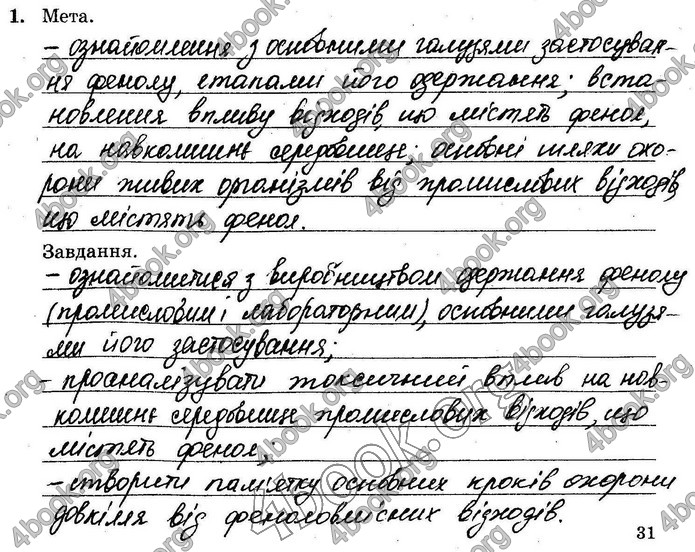 1. Мета.
– ознайомлення з основними галузями застосуван-
ня фенолу, етапами його одержання; вста-
новлення впливу відходів, що містять фенол,
на навколишнє середовище; основні шляхи охо-
рони живих організмів від промислових відходів,
що містять фенол.
Завдання.
– ознайомитися з виробництвом одержання фенолу
(промисловим і лабораторним), основними галузя-
ми його застосування;
– проаналізувати токсичний вплив на нав-
колишнє середовище промислових відходів, що
містять фенол;
– створити пам'ятку основних кроків охорони
довкілля від феноловмісних відходів.
31
4book.org